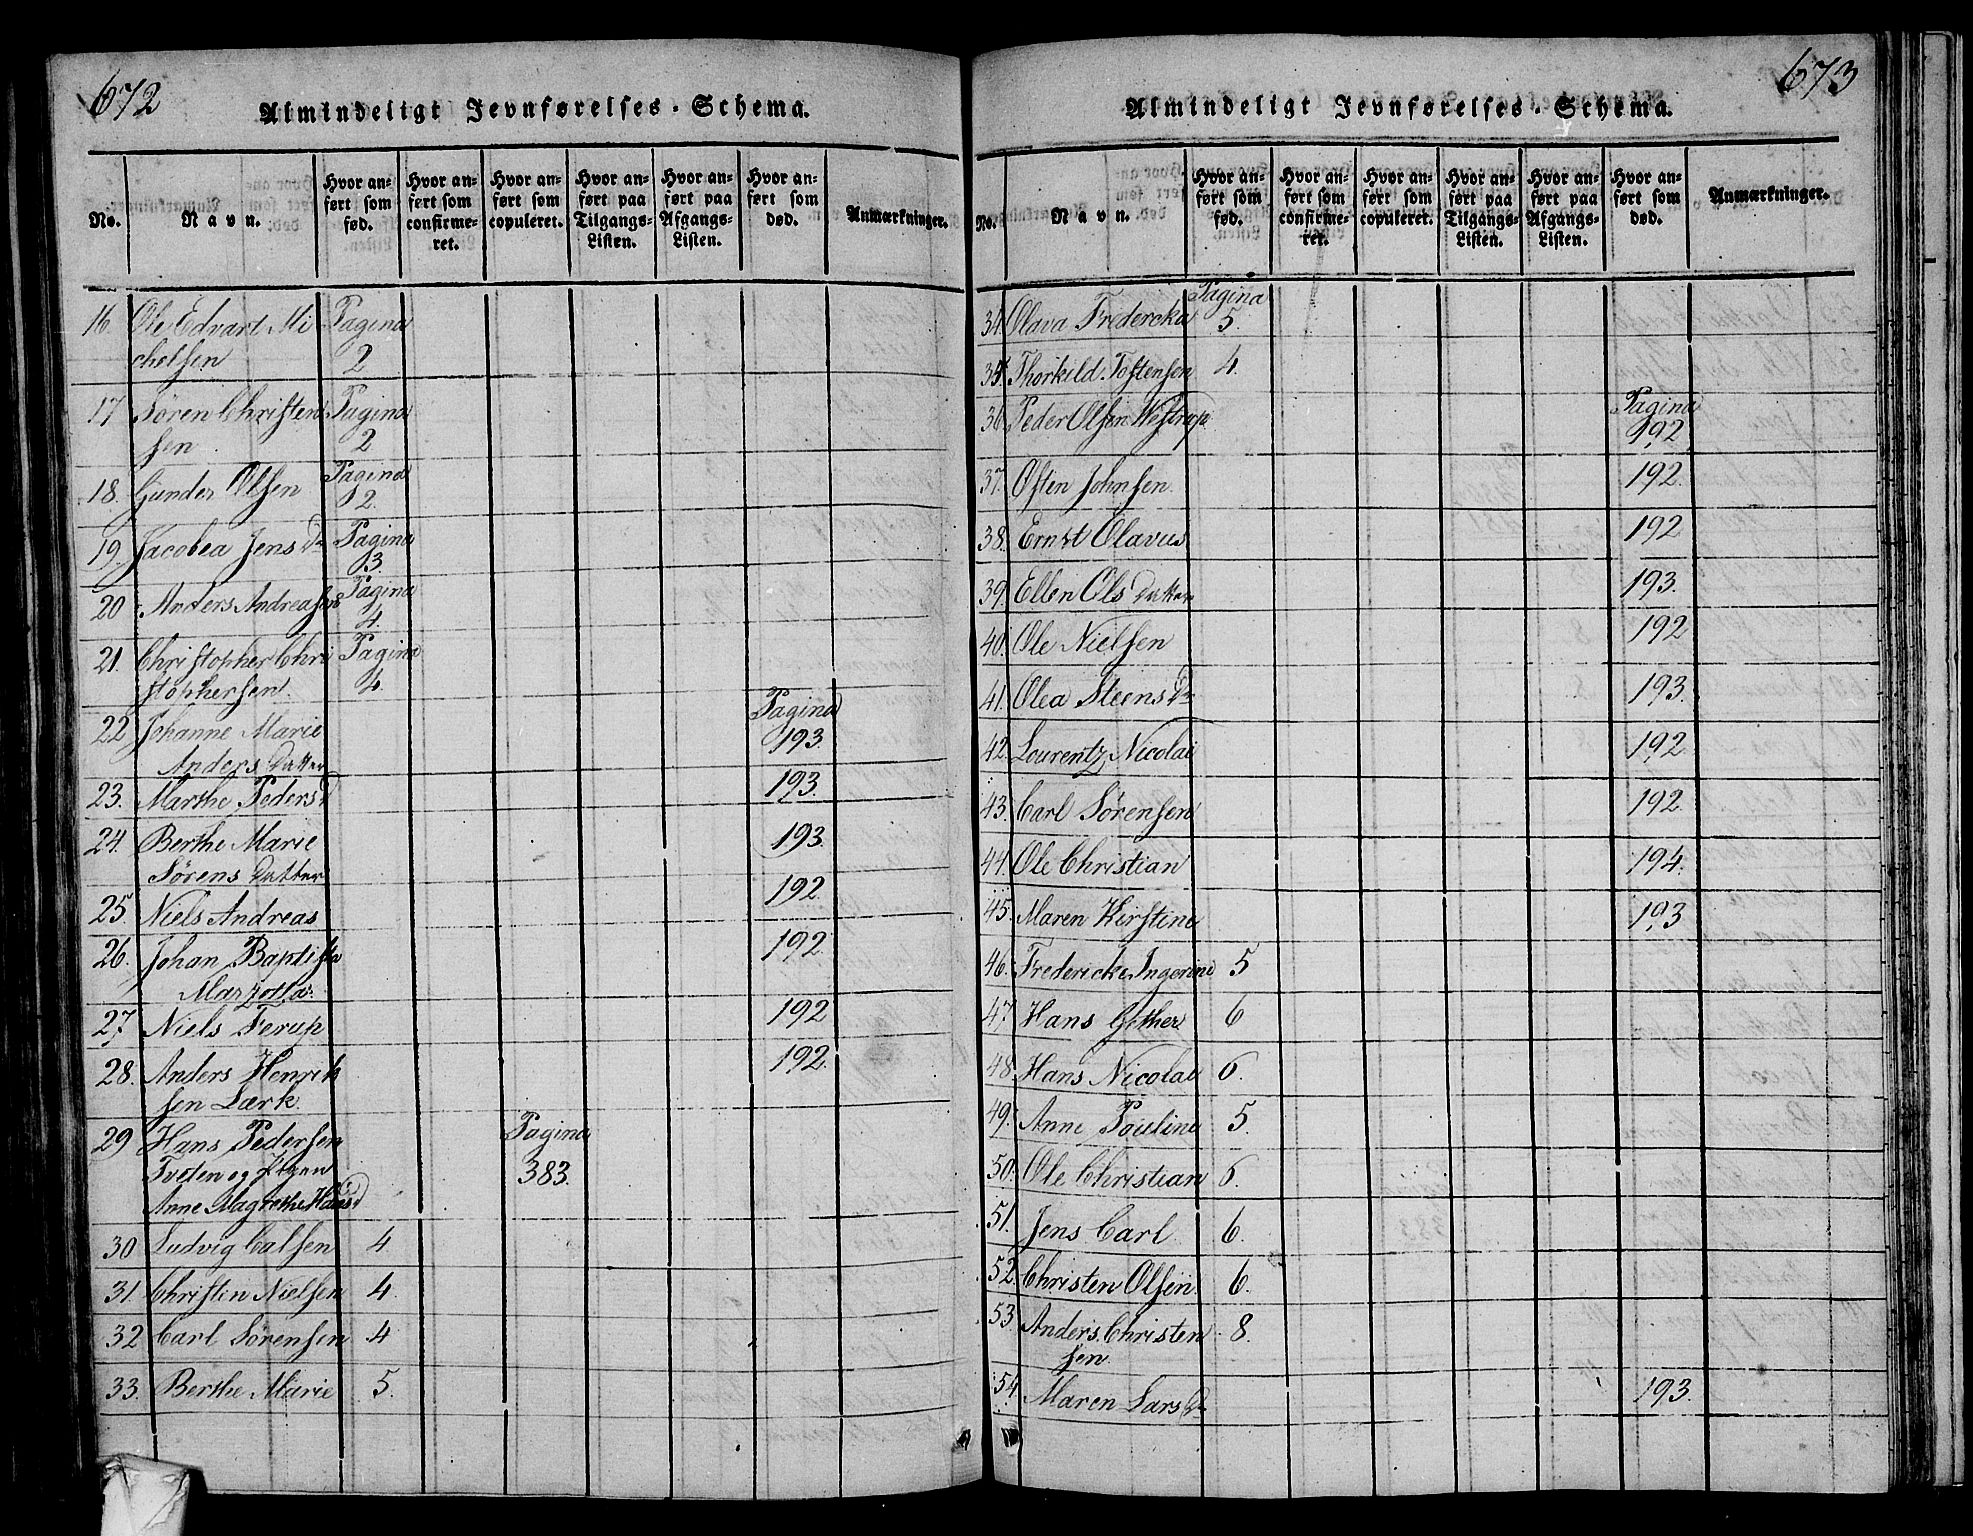 672
Almindeligt Jevnførelses-Schema.
No.
Navn.
Hvor an-
ført som
fød.
Hvor an-
ført som
confirme-
ret.
Hvor an-
ført som
copuleret.
Hvor an-
ført paa
Tilgangs-
Listen.
Hvor an-
ført paa
Afgangs-
Listen.
Hvor an-
ført som
død.
Anmærkninger.
16. Ole Edvart Mi Pagina
chelsen 2
17 Sören Christen Pagina
sen 2
18. Gunder Olsen Pagina
2.
19 Jacobea Jens Dr Pagina
3.
20 Anders Andreasen Pagina
4.
21. Christopher Chri Pagina
stophersen 4.
22 Johanne Marie Pagina
Anders Datter 193.
23. Marthe Peders D 193.
24. Berthe Marie 193.
Sörens Datter
25 Niels Andreas 192.
26. Johan Baptista 192.
Marzotta.
27 Niels Terup 192
28. Anders Henrik 192.
sen Lærk.
29 Hans Pedersen Pagina
Tveten og Pigen 383.
Anne Magrethe Hansd
30 Ludvig Calsen 4
31. Christin Nielsen 4.
32 Carl Sörensen 4
33. Berthe Marie 5.
673
Almindeligt Jevnførelses-Schema.
No.
Navn.
Hvor an-
ført som
fød.
Hvor an-
ført som
confirme-
ret.
Hvor an-
ført som
copuleret.
Hvor an-
ført paa
Tilgangs-
Listen.
Hvor an-
ført paa
Afgangs-
Listen.
Hvor an-
ført som
død.
Anmærkninger.
Pagina
34 Olava Fredericka 5.
35 Thorkild Toftensen 4.
Pagina
36 Peder Olsen Westrup 192
37. Osten Johnsen. 192.
38. Ernst Olavus 192
39. Ellen Ols Datter 193.
40. Ole Nielsen 192
41. Olea Steens Dr 193.
42. Lourentz Nicolai 192
43. Carl Sörensen 192.
44. Ole Christian 194.
45. Maren Kirstine 193
46. Fredericke Ingerine 5
47 Hans Gether 6
48. Hans Nicolai 6.
49. Anne Pouline 5.
50. Ole Christian 6.
51. Jens Carl 6.
52. Christen Olsen 6.
53. Anders Christen 8.
sen.
54. Maren Lars Dr 193.